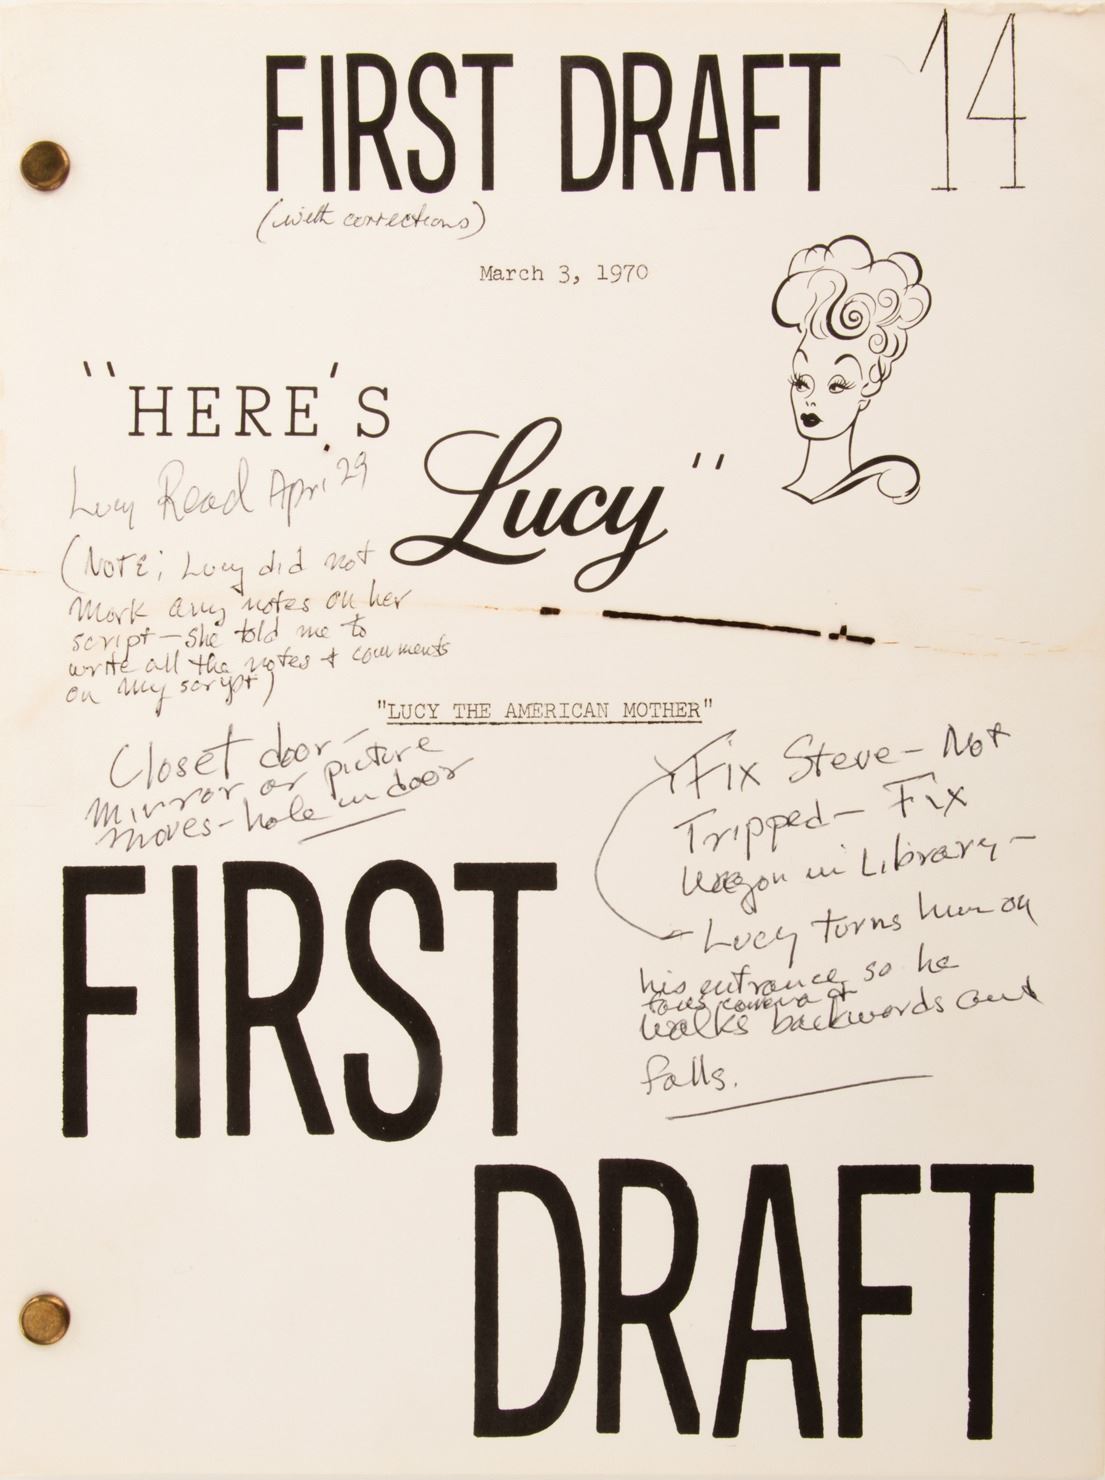 FIRST DRAFT
14
(with corrections)
March 3, 1970
"HERE'S
Lucy"
Lucy Read April 29
(NOTE; Lucy did not
mark any notes on her
script—she told me to
write all the notes + comments
on my script)
"LUCY THE AMERICAN MOTHER"
Closet door—
mirror or picture
moves—hole in door
Fix Steve— Not
Tripped— Fix
Wagon in Library—
Lucy turns him on
his entrance so he
camera +
walks backwords and
falls.
FIRST
DRAFT